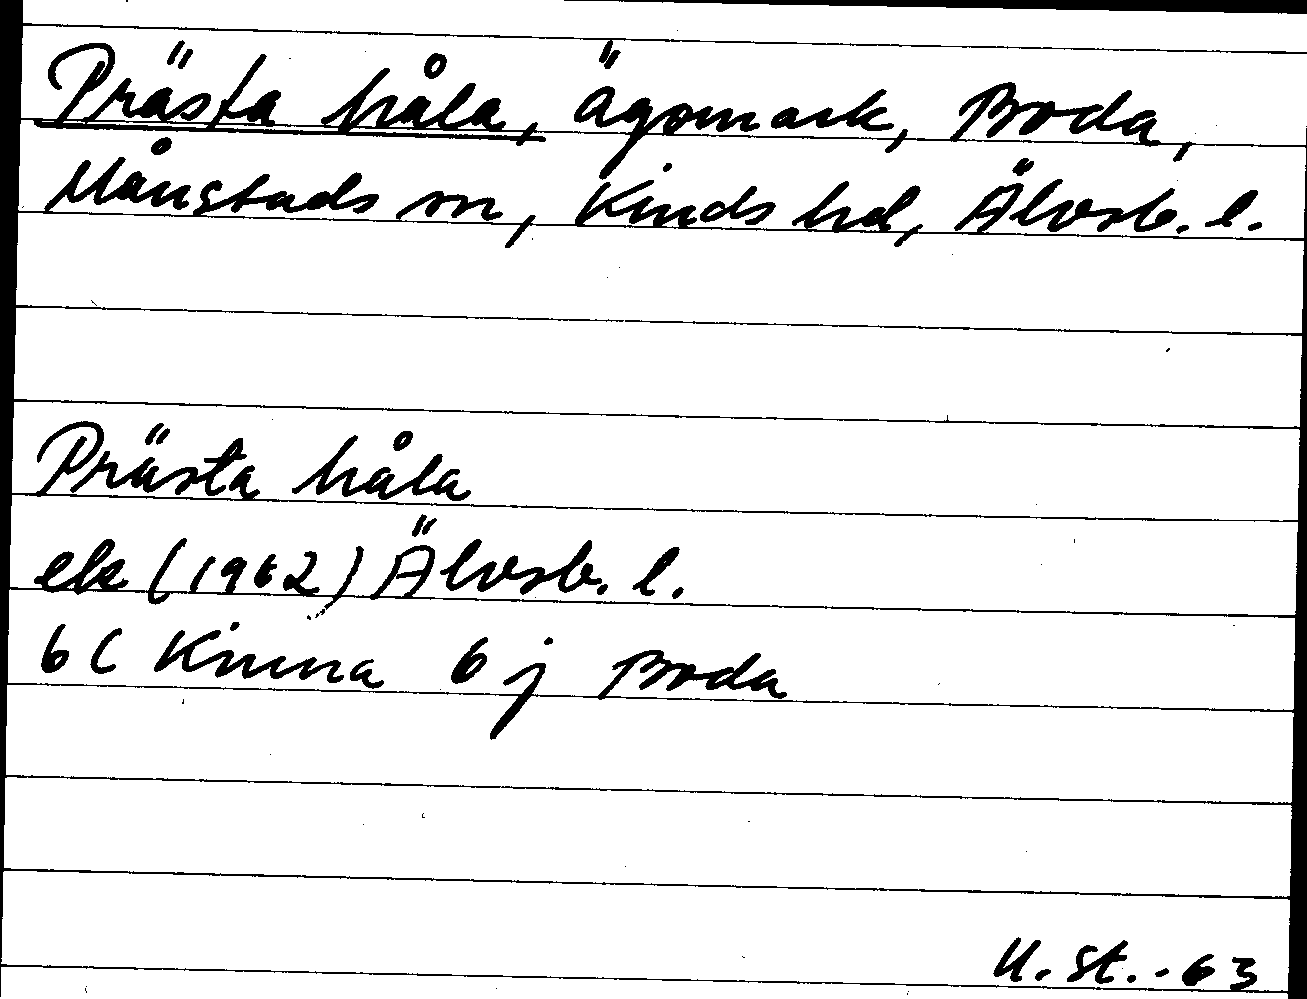 Prästa håla, ägomark, Boda,
Månstads sn, Kinds hd, Älvsb. l.
Prästa håla
ek (1962) Älvsb. l.
6 C Kinna 6 j Boda
U. St. -63